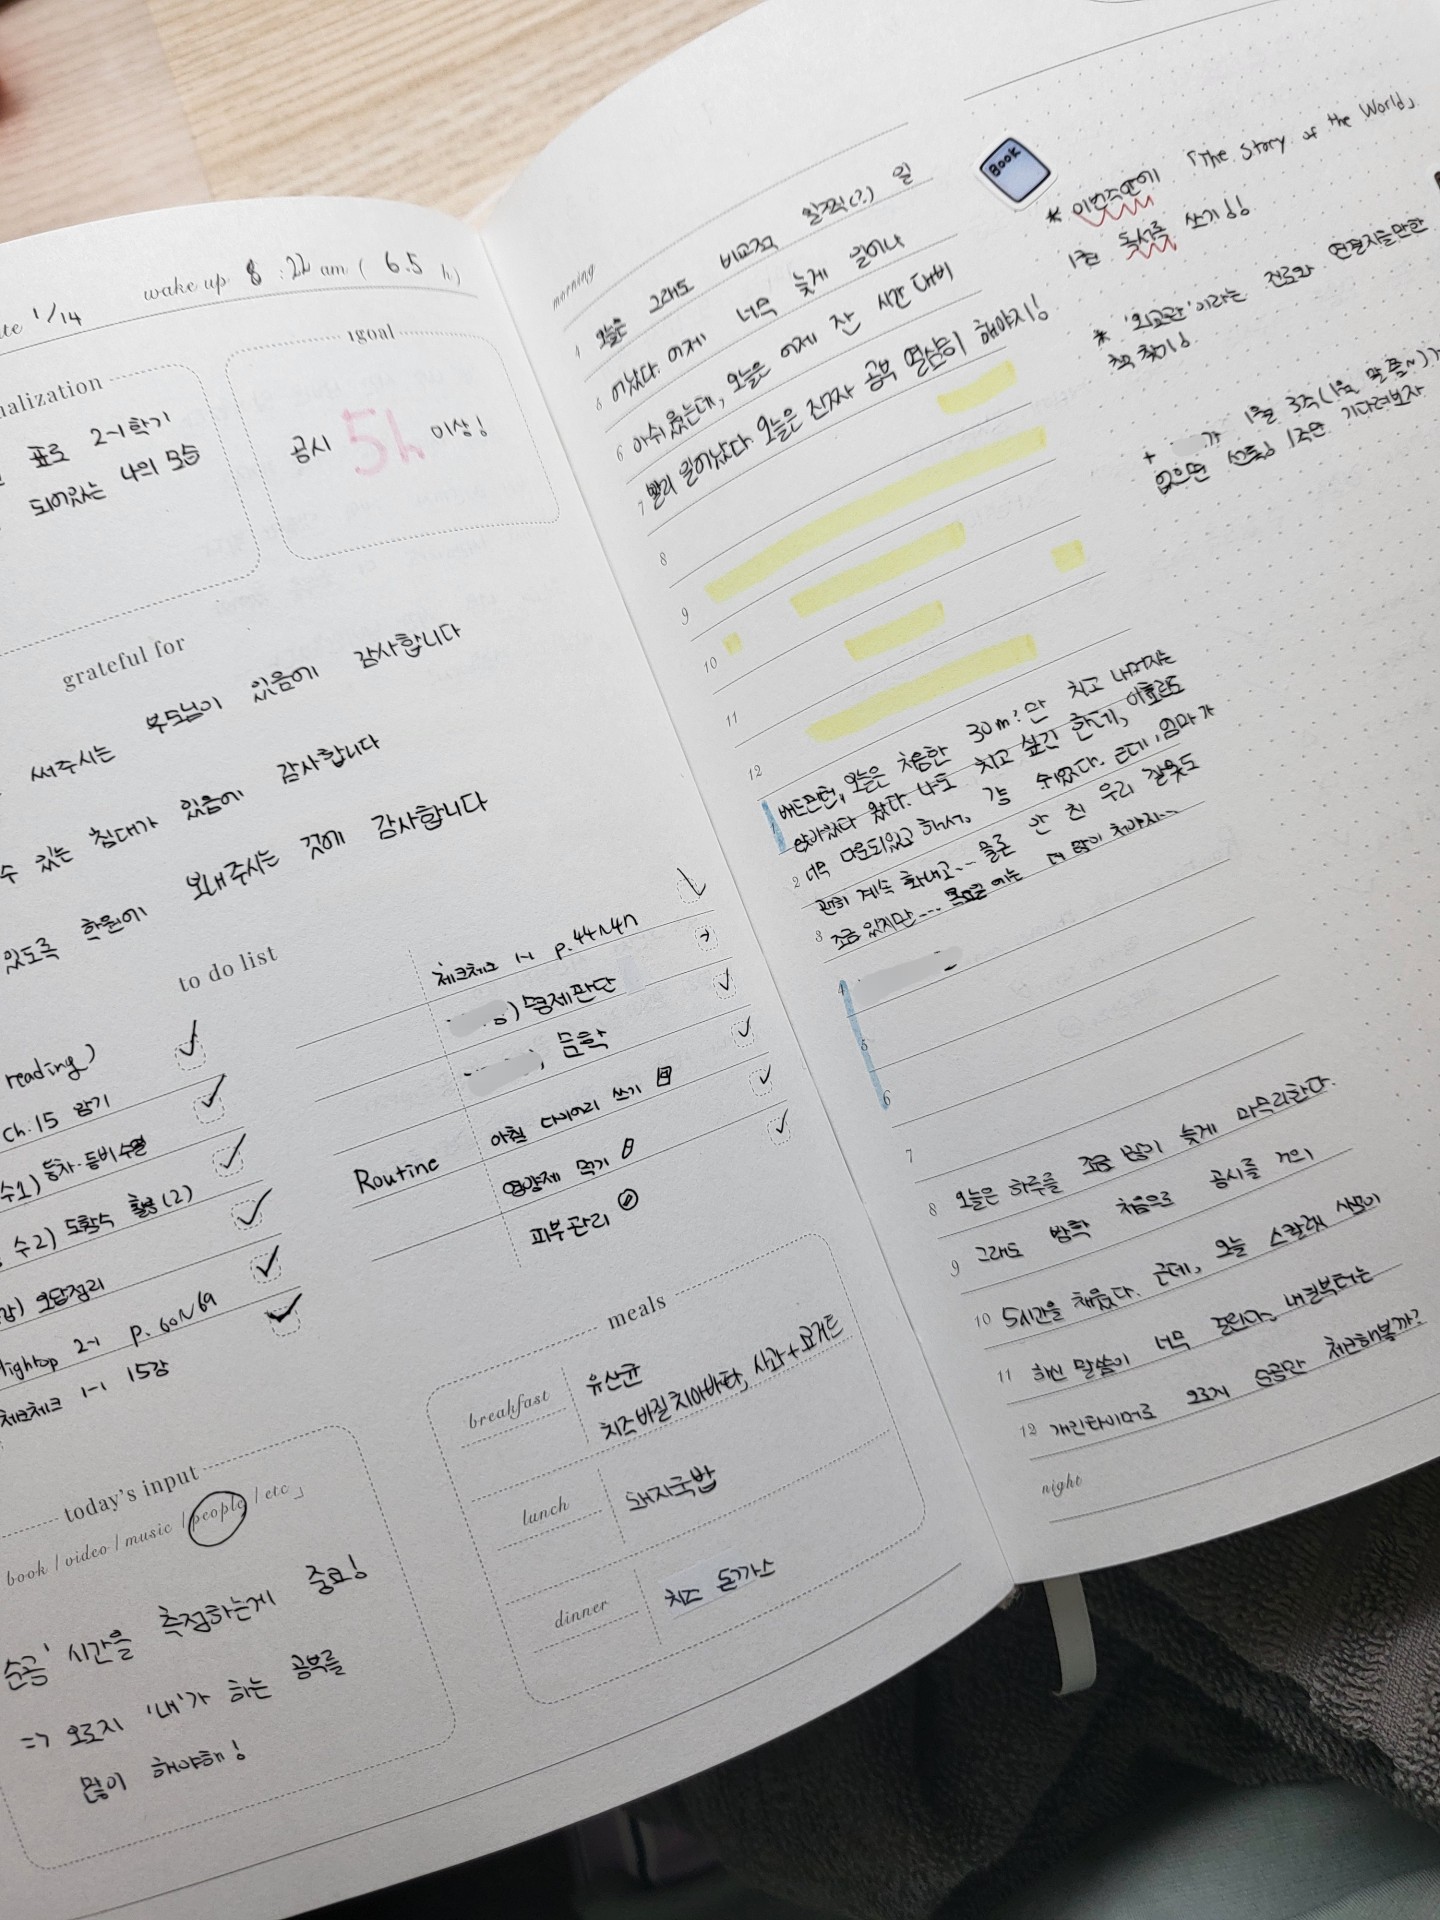 te 1/14
wake up 8 : 22 am ( 6.5 h )
nalization
표로 2-1학기
되어있는 나의 모습
1goal
공시 5h 이상!
grateful for
써주시는 부모님이 있음에 감사합니다
수 있는 침대가 있음에 감사합니다
있도록 학원에 보내주시는 것에 감사합니다
to do list
reading)
ch.15 암기
수1) 등차·등비수열
수2) 도함수 활용(2)
오답정리
Hightop 2-1 p.60~69
체크체크 1-1 15강
체크체크 1-1 p.44~47
) 명제판단
음학
Routine
아침 다이어리 쓰기
영양제 먹기
피부관리
today's input
book / video / music / people / etc 」
순공' 시간을 측정하는게 중요!
=> 오로지 '내'가 하는 공부를
많이 해야해!
meals
breakfast
유산균
치즈바질치아바타, 사과+요거트
lunch
돼지국밥
dinner
치즈 돈까스
morning
오늘은 그래도 비교적 일찍(?) 일
어났다. 어제 너무 늦게 일어나
아쉬웠는데, 오늘은 어제 잔 시간 대비
빨리 일어났다. 오늘은 진짜 공부 열심히 해야지!
4
6
6
7
8
9
10
11
12
1 배드민턴, 오늘은 처음한 30m?만 치고 나머지는
앉아있다 왔다. 나도 치고 싶긴 한데, 이효로도
2 너무 다운되있고 해서, 걍 쉬었다. 근데, 엄마가
괜히 계속 화내고... 물론 안 친 우리 잘못도
3 조금 있지만... 목요일에는 더 많이 쳐야지...
4
5
6
7
8 오늘은 하루를 조금 많이 늦게 마무리한다.
9 그래도 방학 처음으로 공시를 거의
10 5시간을 채웠다. 근데, 오늘 스칼래 쌤이
11 하신 말씀이 너무 찔린다. 내일부터는
12 개인타이머로 오로지 순공만 체크해볼까?
night
BOOK
* 이번주안에 「The Story of the World」
1권 독서록 쓰기!!
* '외교관'이라는 진로와 연결지을만한
책 찾기!
+ 가 1월 3주(1월 말 쯤~)
없으면 선톡! 1주만 기다려보자